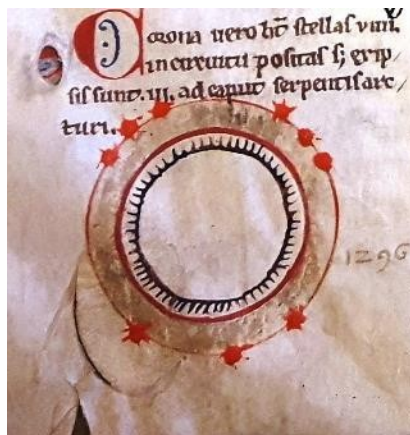 Corona uero ht̄ stellas viiii.
incircuitu positas s; erip/
sis sunt .iii. ad caput serpentis arc/
turi.
1296